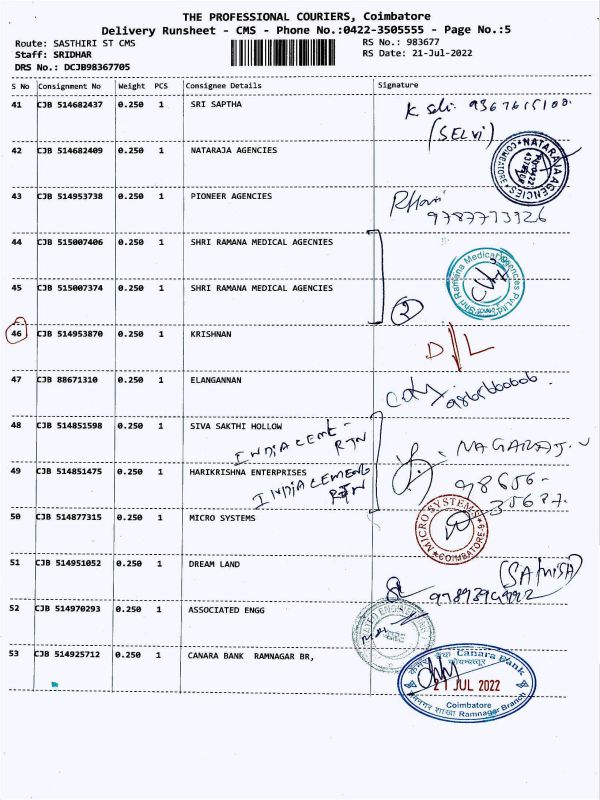 THE PROFESSIONAL COURIERS, Coimbatore
Delivery Runsheet - CMS - Phone No.:0422-3505555 - Page No.:5
Route: SASTHIRI ST CMS
Staff: SRIDHAR
DRS No.: DCJB98367705
RS No.: 983677
RS Date: 21-Jul-2022
S No Consignment No Weight PCS Consignee Details Signature
41 CJB 514682437 0.250 1 SRI SAPTHA
(SELVI)
42 CJB 514682409 0.250 1 NATARAJA AGENCIES
NATARAJA AGENCIES COIMBATORE
43 CJB 514953738 0.250 1 PIONEER AGENCIES
9787773926
44 CJB 515007406 0.250 1 SHRI RAMANA MEDICAL AGECNIES
45 CJB 515007374 0.250 1 SHRI RAMANA MEDICAL AGENCIES
Shri Ramana Medical Agencies Pvt Ltd
2
46 CJB 514953870 0.250 1 KRISHNAN
D/L
47 CJB 88671310 0.250 1 ELANGANNAN
48 CJB 514851598 0.250 1 SIVA SAKTHI HOLLOW
INDIA CEME - RTN
NAGARAJ. V
49 CJB 514851475 0.250 1 HARIKRISHNA ENTERPRISES
INDIA CEMENG RTN
98656-
35687.
50 CJB 514877315 0.250 1 MICRO SYSTEMS
MICRO SYSTEMS COIMBATORE
51 CJB 514951052 0.250 1 DREAM LAND
52 CJB 514970293 0.250 1 ASSOCIATED ENGG
53 CJB 514925712 0.250 1 CANARA BANK RAMNAGAR BR,
केनरा बैंक Canara Bank
कोयम्बत्तूर
21 JUL 2022
Coimbatore
रामनगर शाखा Ramnagar Branch